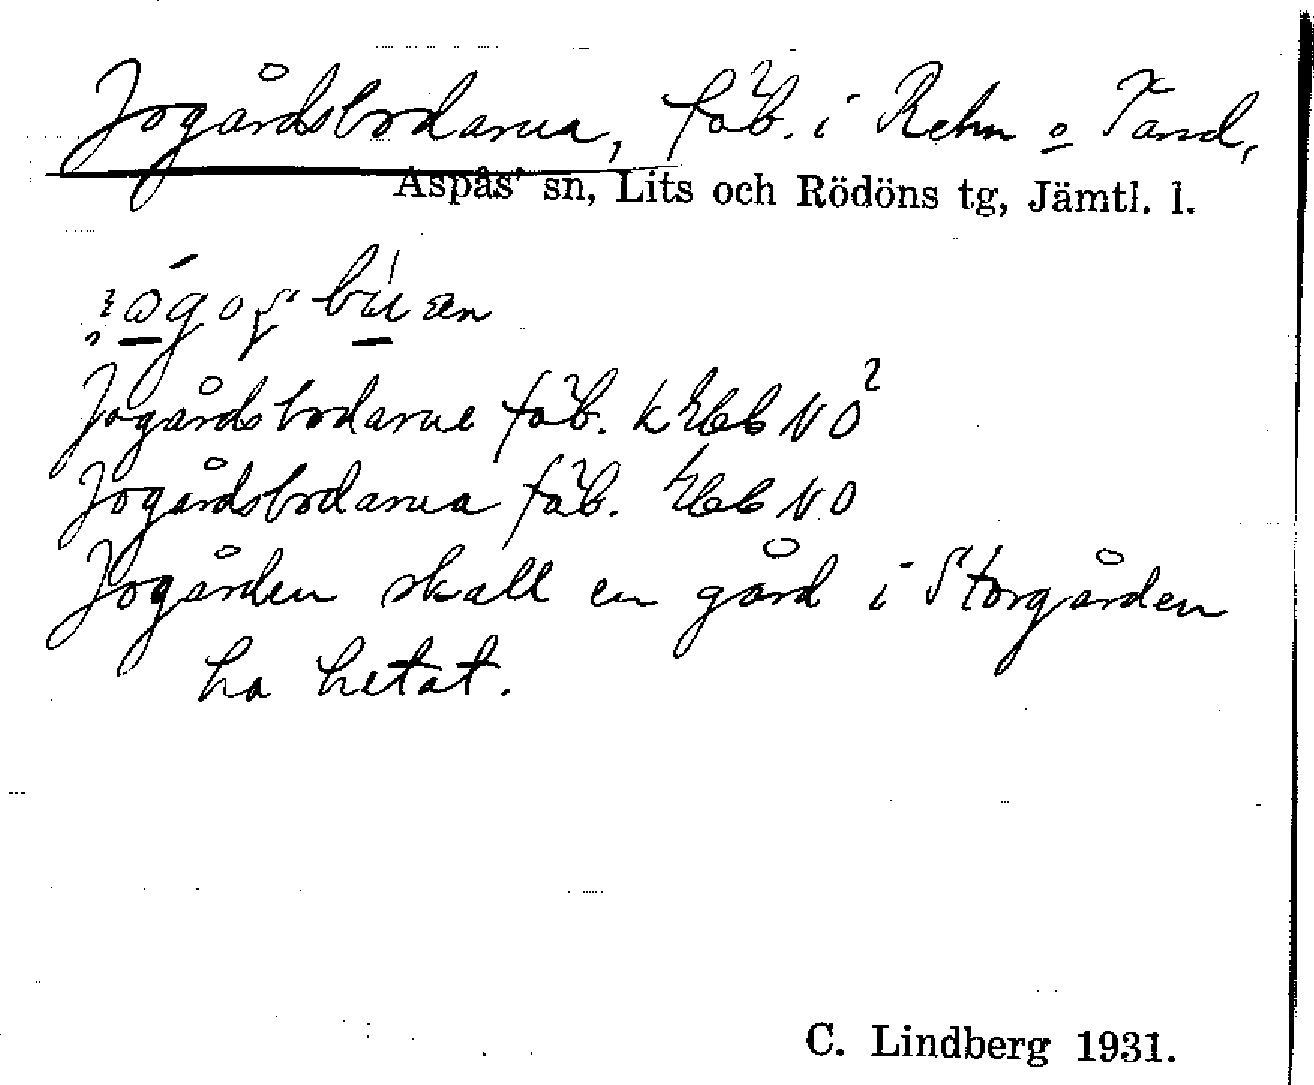 Jogårdsbodarna, fäb. i Rehn o Tand,
Aspås' sn, Lits och Rödöns tg, Jämtl. l.
Jogårdsbodarne fäb. NO
Jogårdsbodarna fäb. NO
Jogården skall en gård i Storgården
ha hetat.
C. Lindberg 1931.